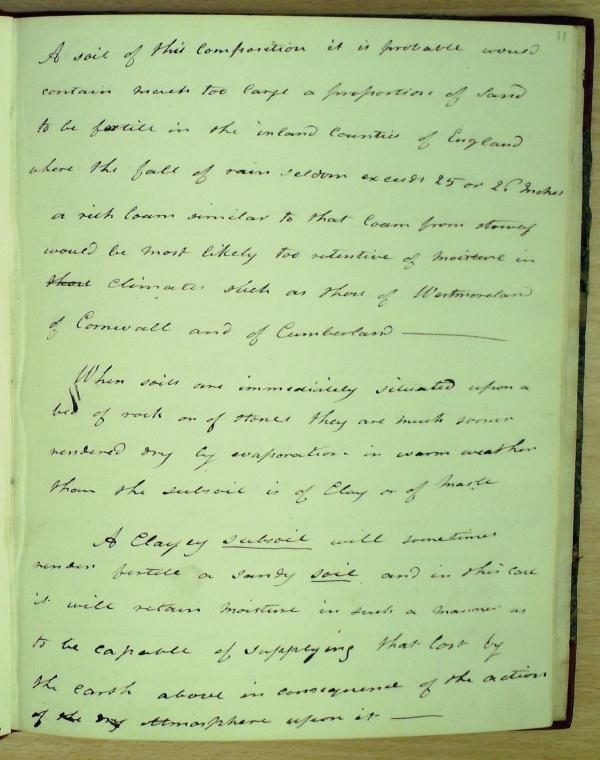 11
A soil of this composition it is probable would
contain much too large a proportion of Sand
to be fertile in the inland Counties of England
where the fall of rain seldom exceeds 25 or 26 Inches
a rich loam similar to that loam from stowey
would be most likely too retentive of moisture in
those Climates such as those of Westmoreland
of Cornwall and of Cumberland —
When soils are immediately situated upon a
bed of rock or of stones they are much sooner
rendered dry by evaporation in warm weather
than the subsoil is of Clay or of Marle
A Clayey subsoil will sometimes
render fertile a sandy soil and in this Case
it will retain moisture in such a manner as
to be capable of supplying that lost by
the earth above in consequence of the action
of the dry Atmosphere upon it —